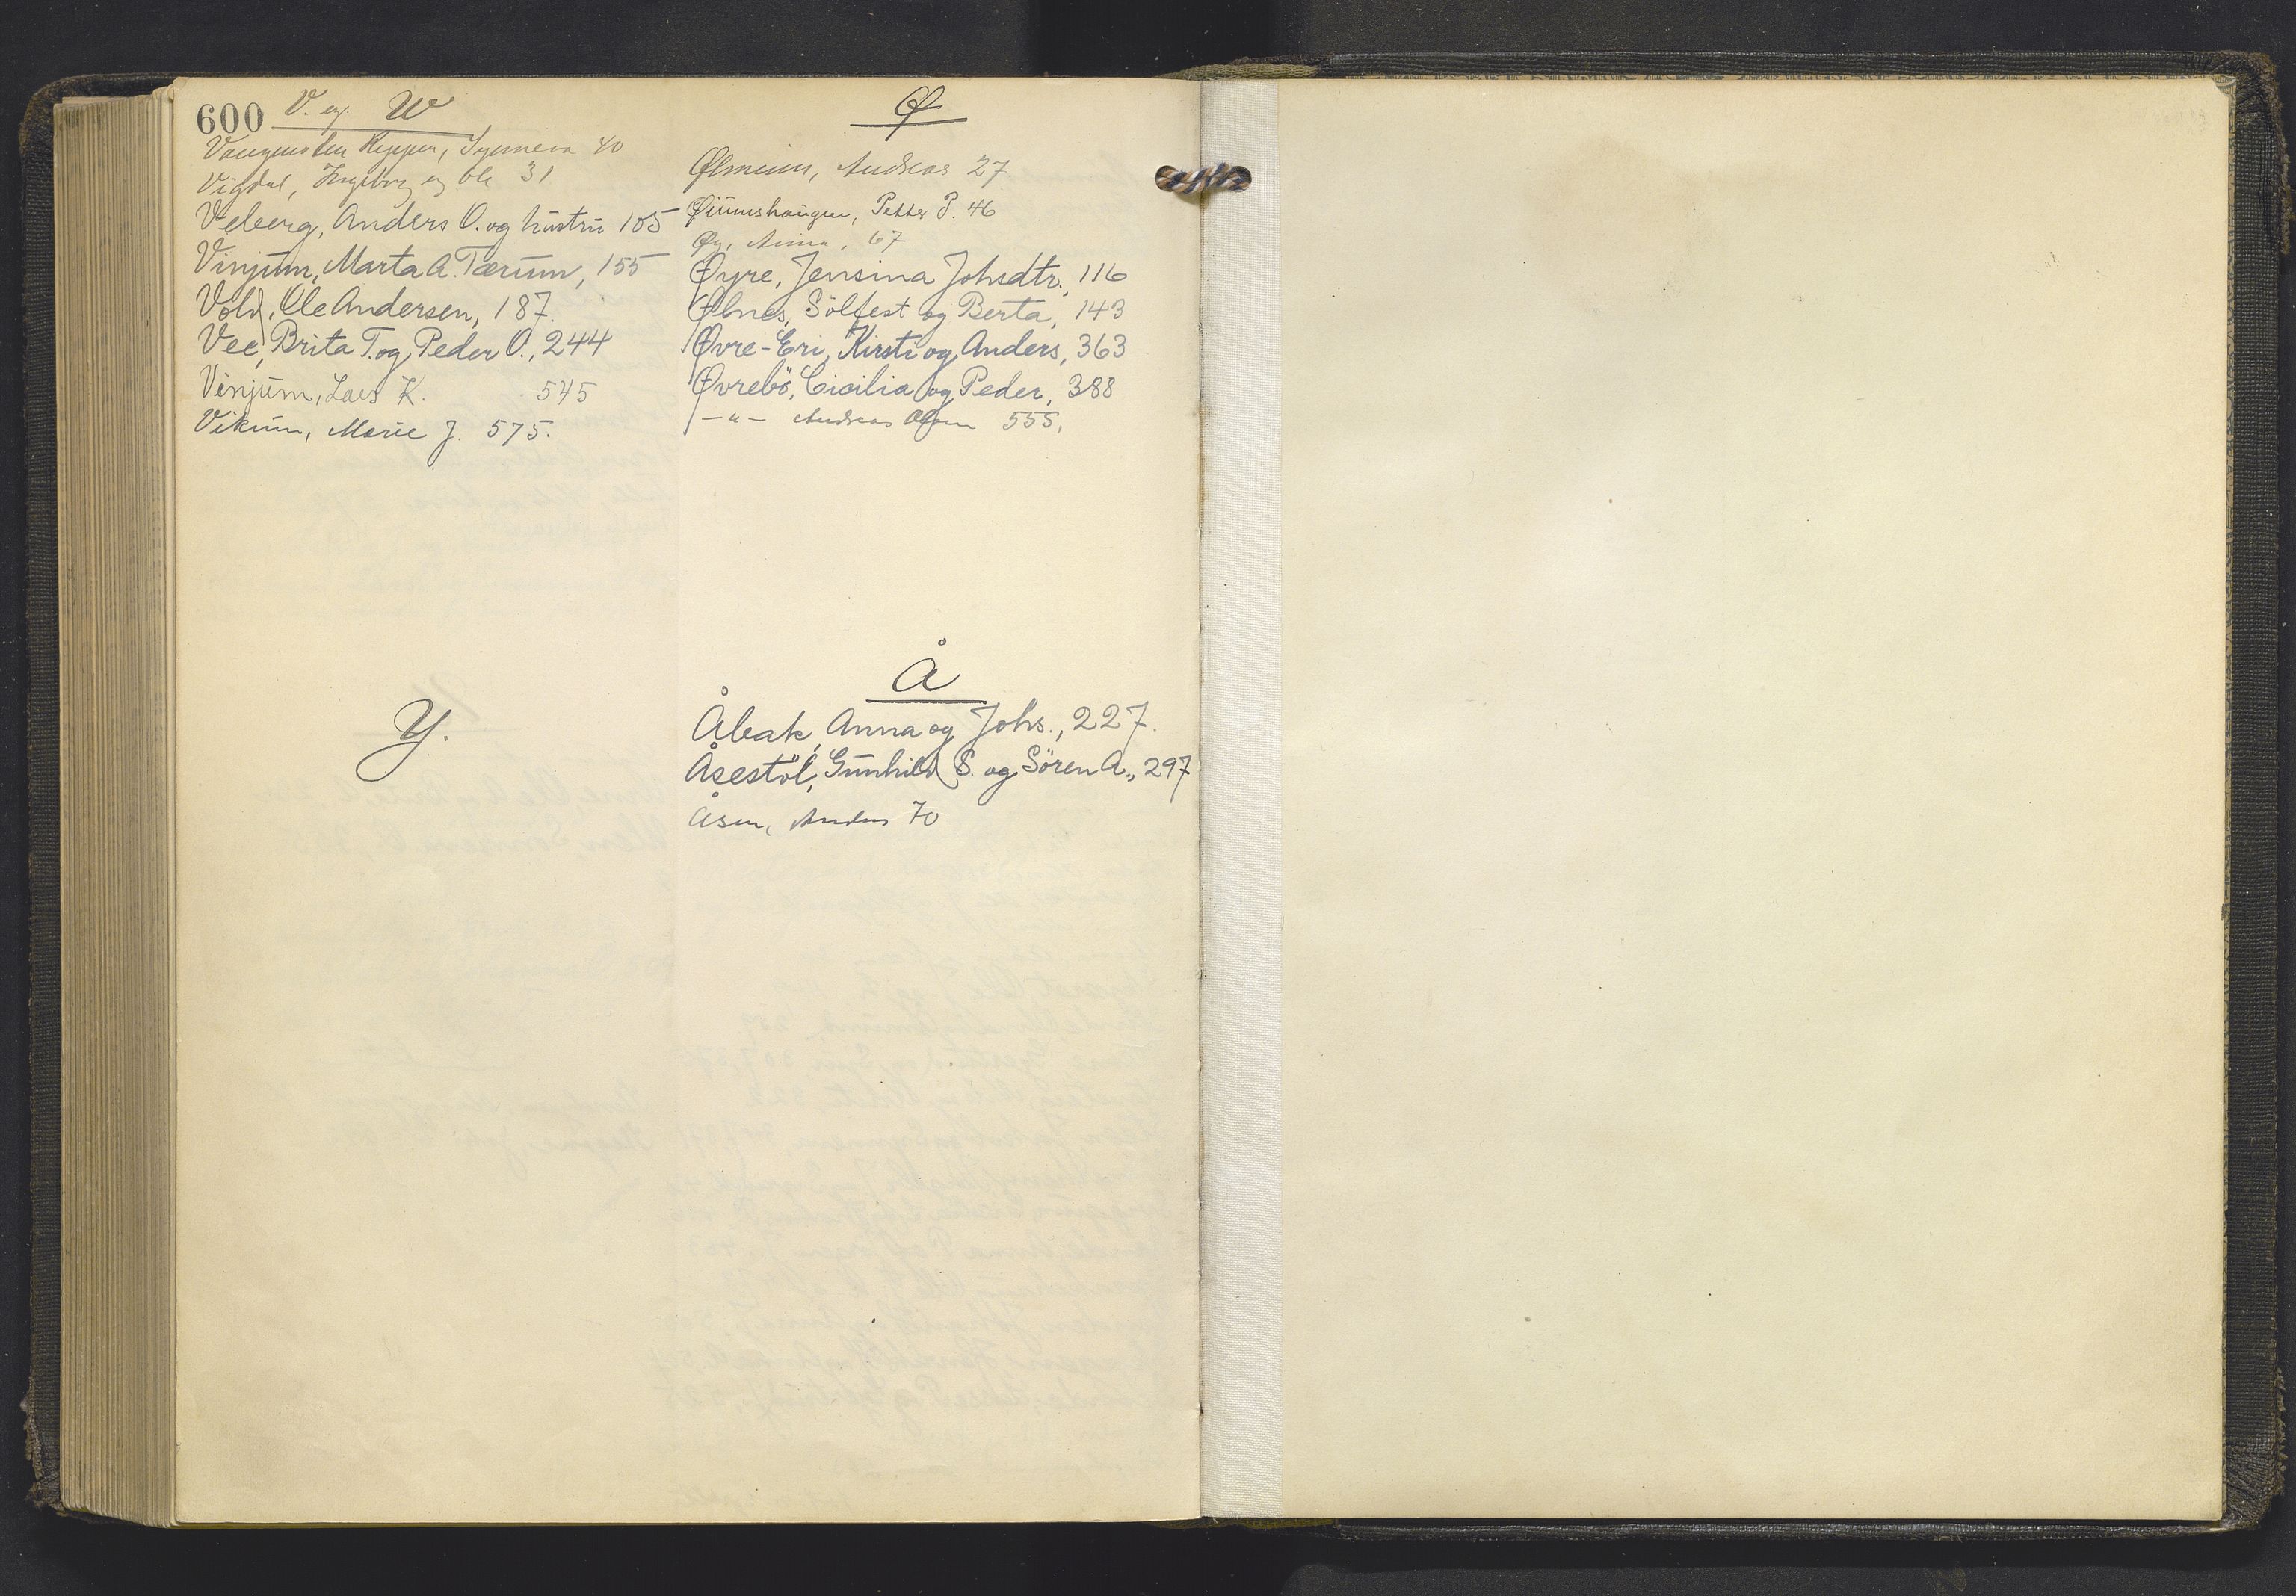 600 V. og W
Vangensten Heggen, Synneva 40
Vigdal, Ingeborg og Ole 31
Veberg, Anders O. og hustru 105
Vinjum, Marta A. Tærum, 155
Vold, Ole Andersen, 187.
Vee, Brita T. og Peder O., 244
Vinjum, Lars K. 545
Vikum, Marie J. 575.
Y.
Ø
Ølmeim, Andreas 27
Petter P. 46
Øy, Anna, 67
Øyre, Jensina Johsdtr., 116
Ølnes, Sölfest og Berta, 143
Øvre-Eri, Kirsti og Anders, 363
Øvrebö, Cicilia og Peder, 388
-"- Andreas Olsen 555,
Å
Åbak, Anna og Johs., 227.
Åsestöl, Gunhild S. og Sören A., 297
Åsen, Anders 70